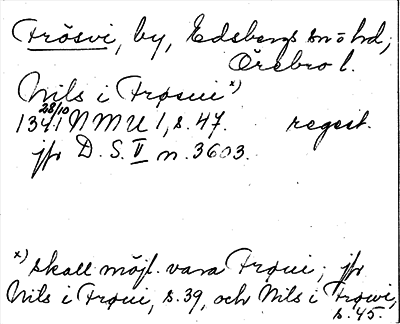 Frösvi, by, Edsbergs sn o hd,
Örebro l.
Nils i Frøsui x)
1341 28/10 NMU 1, s. 47. regest.
jfr D. S. V n. 3603.
x) skall möjl. vara Frøui; jfr
Nils i Frøui, s. 39, och Nils i Frøwi,
s. 45.